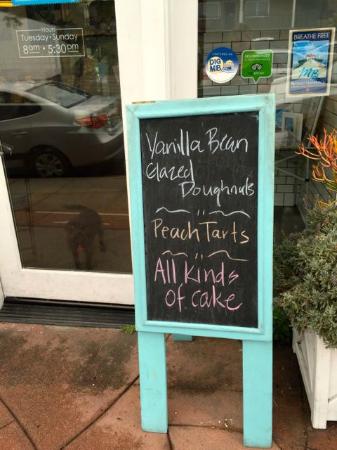 Hours
Tuesday - Sunday
8am - 5:30pm
DIG
MB
BREATHE FREE
MB
Vanilla Bean
Glazed
Doughnuts
Peach Tarts
All kinds
of cake